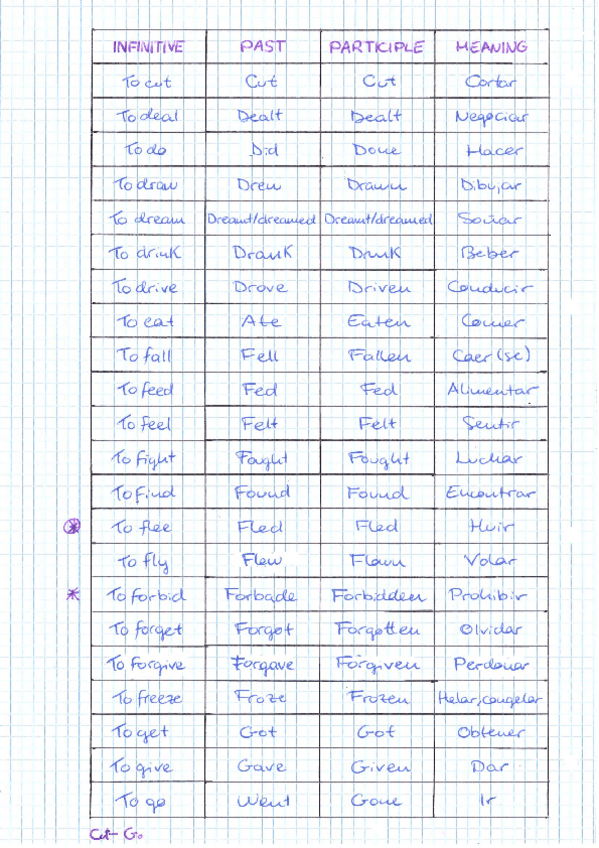 INFINITIVE PAST PARTICIPLE MEANING
To cut Cut Cut Cortar
To deal Dealt Dealt Negociar
To do Did Done Hacer
To draw Drew Drawn Dibujar
To dream Dreamt/dreamed Dreamt/dreamed Soñar
To drink Drank Drunk Beber
To drive Drove Driven Conducir
To eat Ate Eaten Comer
To fall Fell Fallen Caer (se)
To feed Fed Fed Alimentar
To feel Felt Felt Sentir
To fight Fought Fought Luchar
To find Found Found Encontrar
To flee Fled Fled Huir
To fly Flew Flown Volar
* To forbid Forbade Forbidden Prohibir
To forget Forgot Forgotten Olvidar
To forgive Forgave Forgiven Perdonar
To freeze Froze Frozen Helar, congelar
To get Got Got Obtener
To give Gave Given Dar
To go Went Gone Ir
Cut - Go